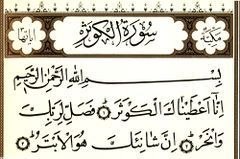 مكية سورة الكوثر آياتها
بِسْمِ اللَّهِ الرَّحْمَٰنِ الرَّحِيمِ
إِنَّا أَعْطَيْنَاكَ الْكَوْثَرَ فَصَلِّ لِرَبِّكَ
وَانْحَرْ إِنَّ شَانِئَكَ هُوَ الْأَبْتَرُ